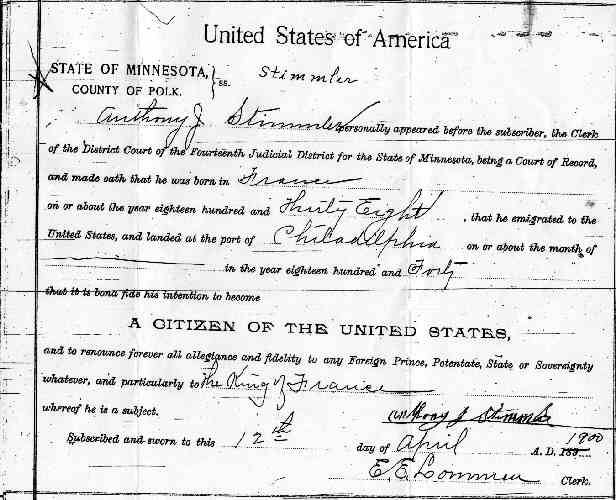 United States of America
STATE OF MINNESOTA, } ss. Stimmler
COUNTY OF POLK.
Anthony J Stimmler personally appeared before the subscriber, the Clerk
of the District Court of the Fourteenth Judicial District for the State of Minnesota, being a Court of Record,
and made oath that he was born in France
on or about the year eighteen hundred and Thirty Eight, that he emigrated to the
United States, and landed at the port of Philadelphia on or about the month of
in the year eighteen hundred and Forty
that it is bona fide his intention to become
A CITIZEN OF THE UNITED STATES,
and to renounce forever all allegiance and fidelity to any Foreign Prince, Potentate, State or Sovereignty
whatever, and particularly to the King of France
whereof he is a subject. Anthony J Stimmler
Subscribed and sworn to this 12th day of April A. D. 1900
E. E. Lommen Clerk.